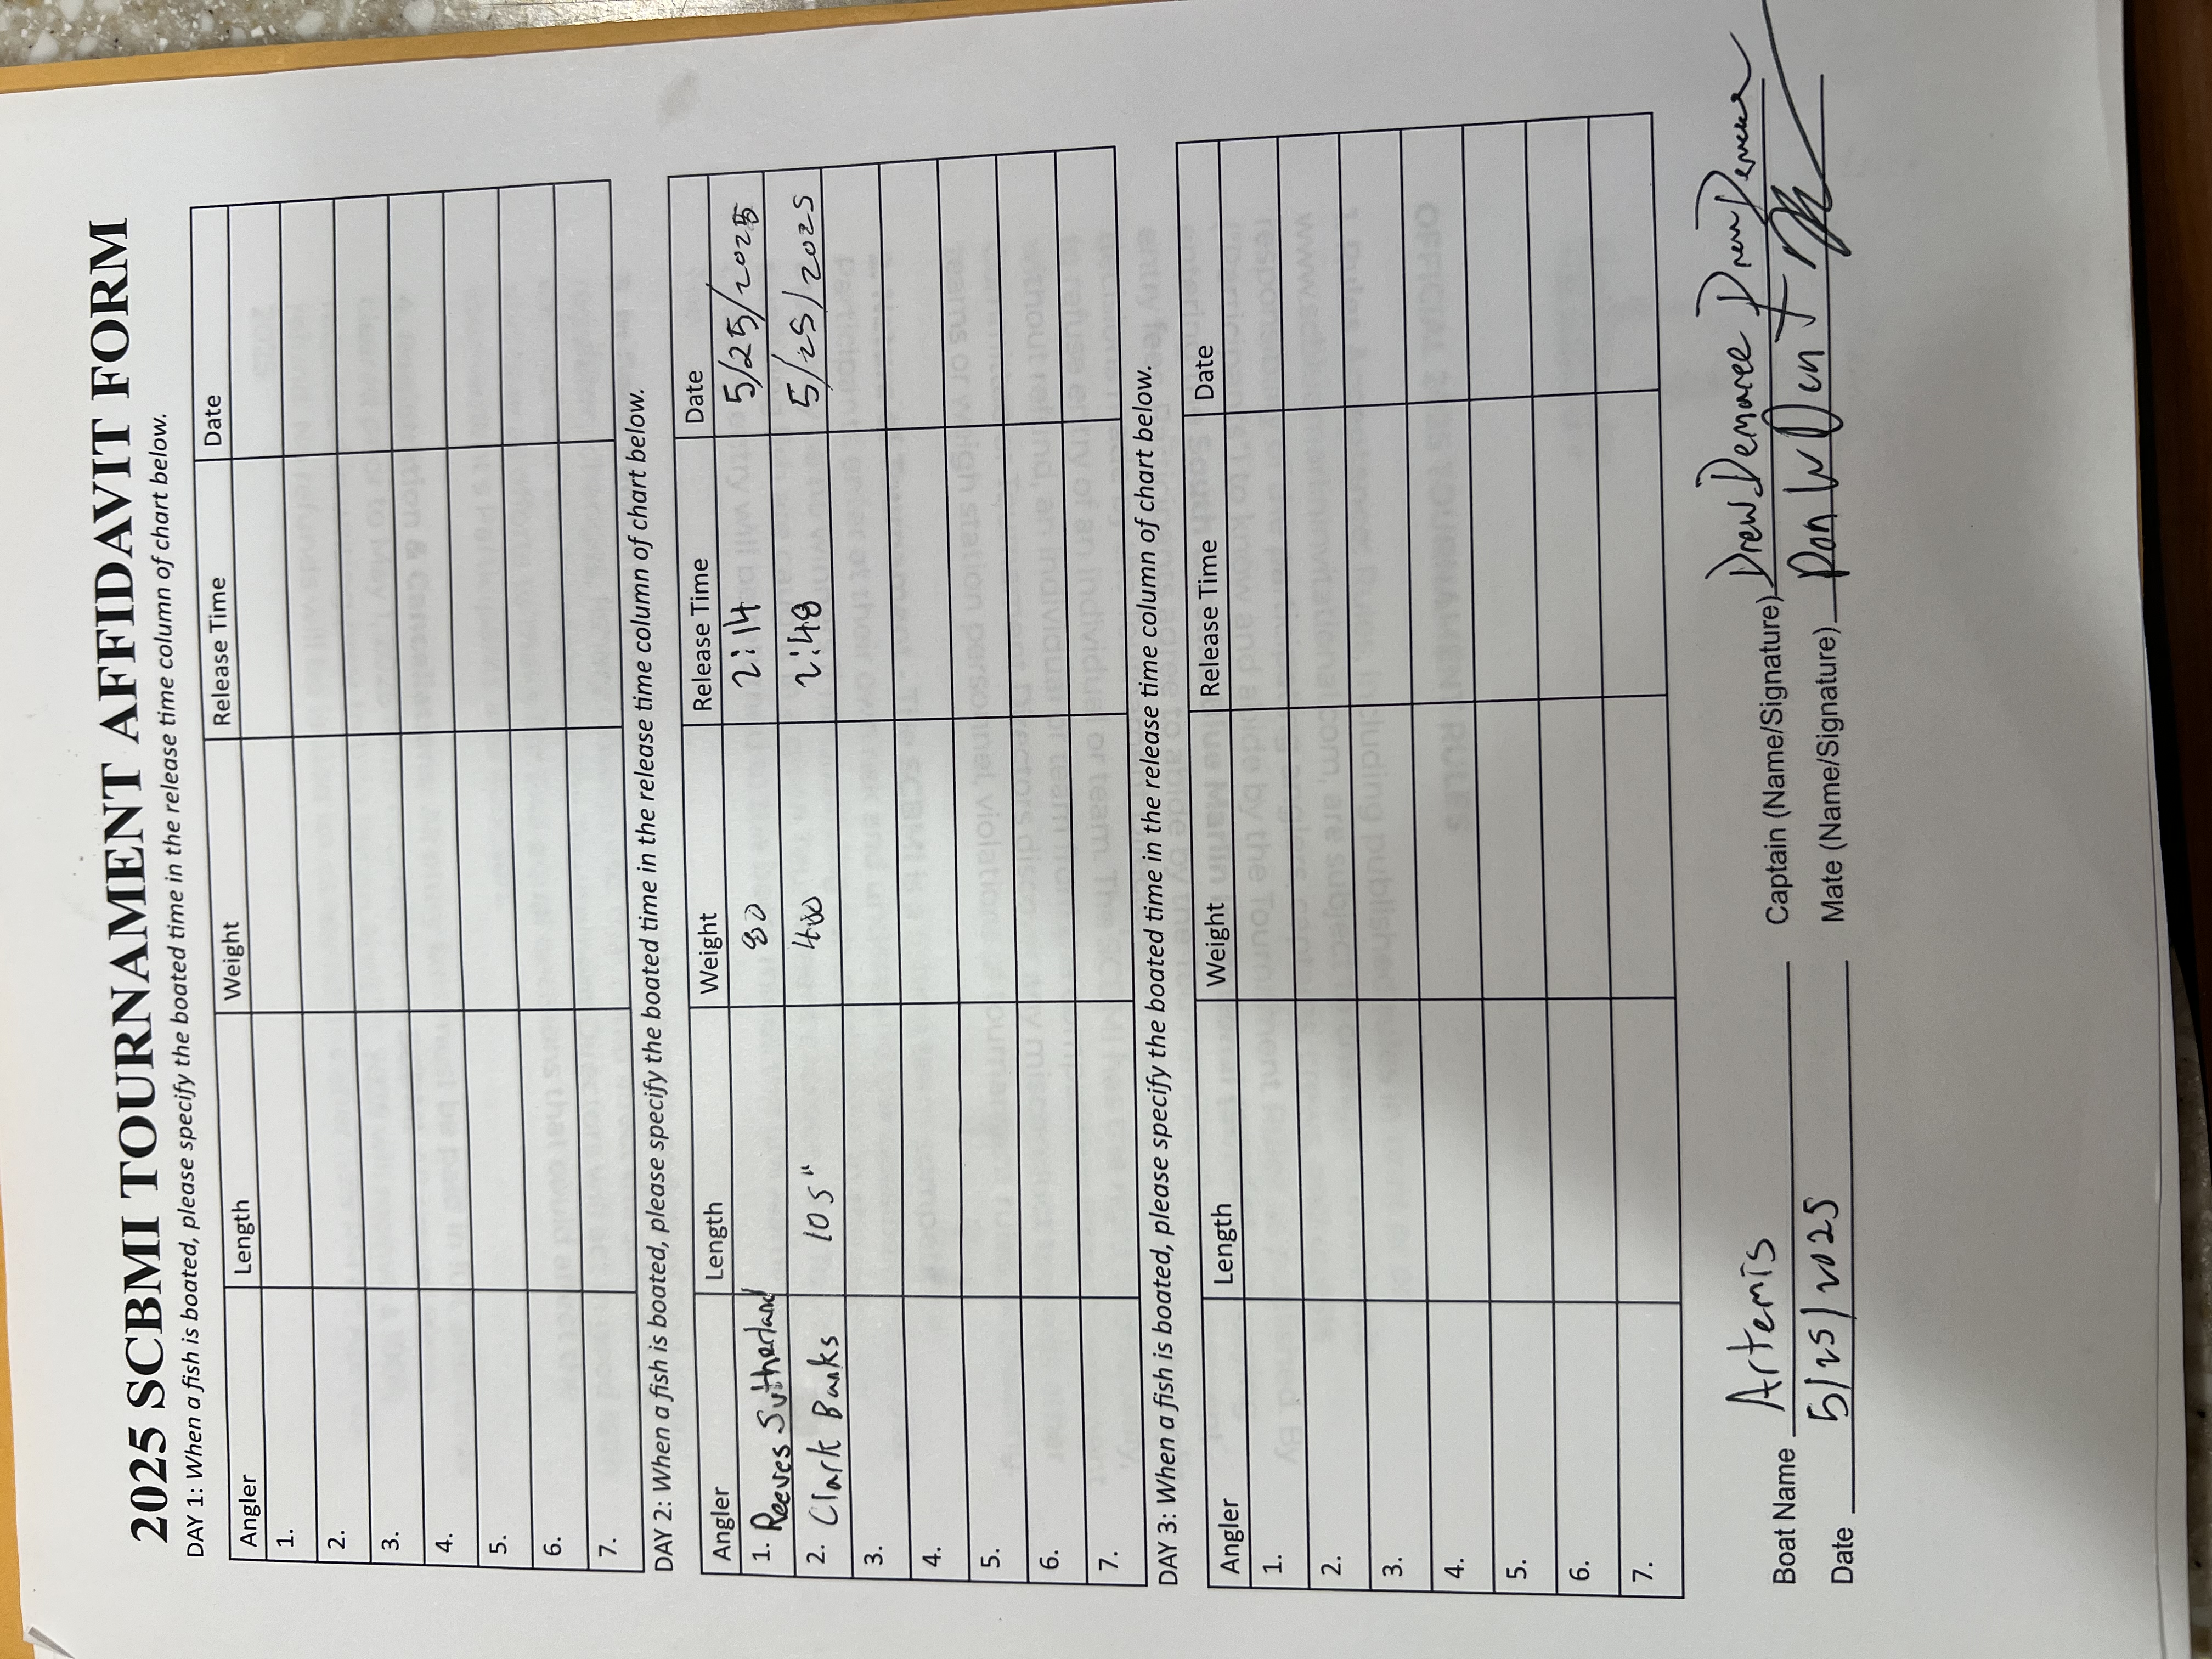 2025 SCBMI TOURNAMENT AFFIDAVIT FORM
DAY 1: When a fish is boated, please specify the boated time in the release time column of chart below.
Angler Length Weight Release Time Date
1.
2.
3.
4.
5.
6.
7.
DAY 2: When a fish is boated, please specify the boated time in the release time column of chart below.
Angler Length Weight Release Time Date
1. Reeves Sutherland 80 2:14 5/25/2025
2. Clark Banks 105" 400 2:48 5/25/2025
3.
4.
5.
6.
7.
DAY 3: When a fish is boated, please specify the boated time in the release time column of chart below.
Angler Length Weight Release Time Date
1.
2.
3.
4.
5.
6.
7.
Boat Name Artemis Captain (Name/Signature) Drew Demaree
Date 5/25/2025 Mate (Name/Signature)